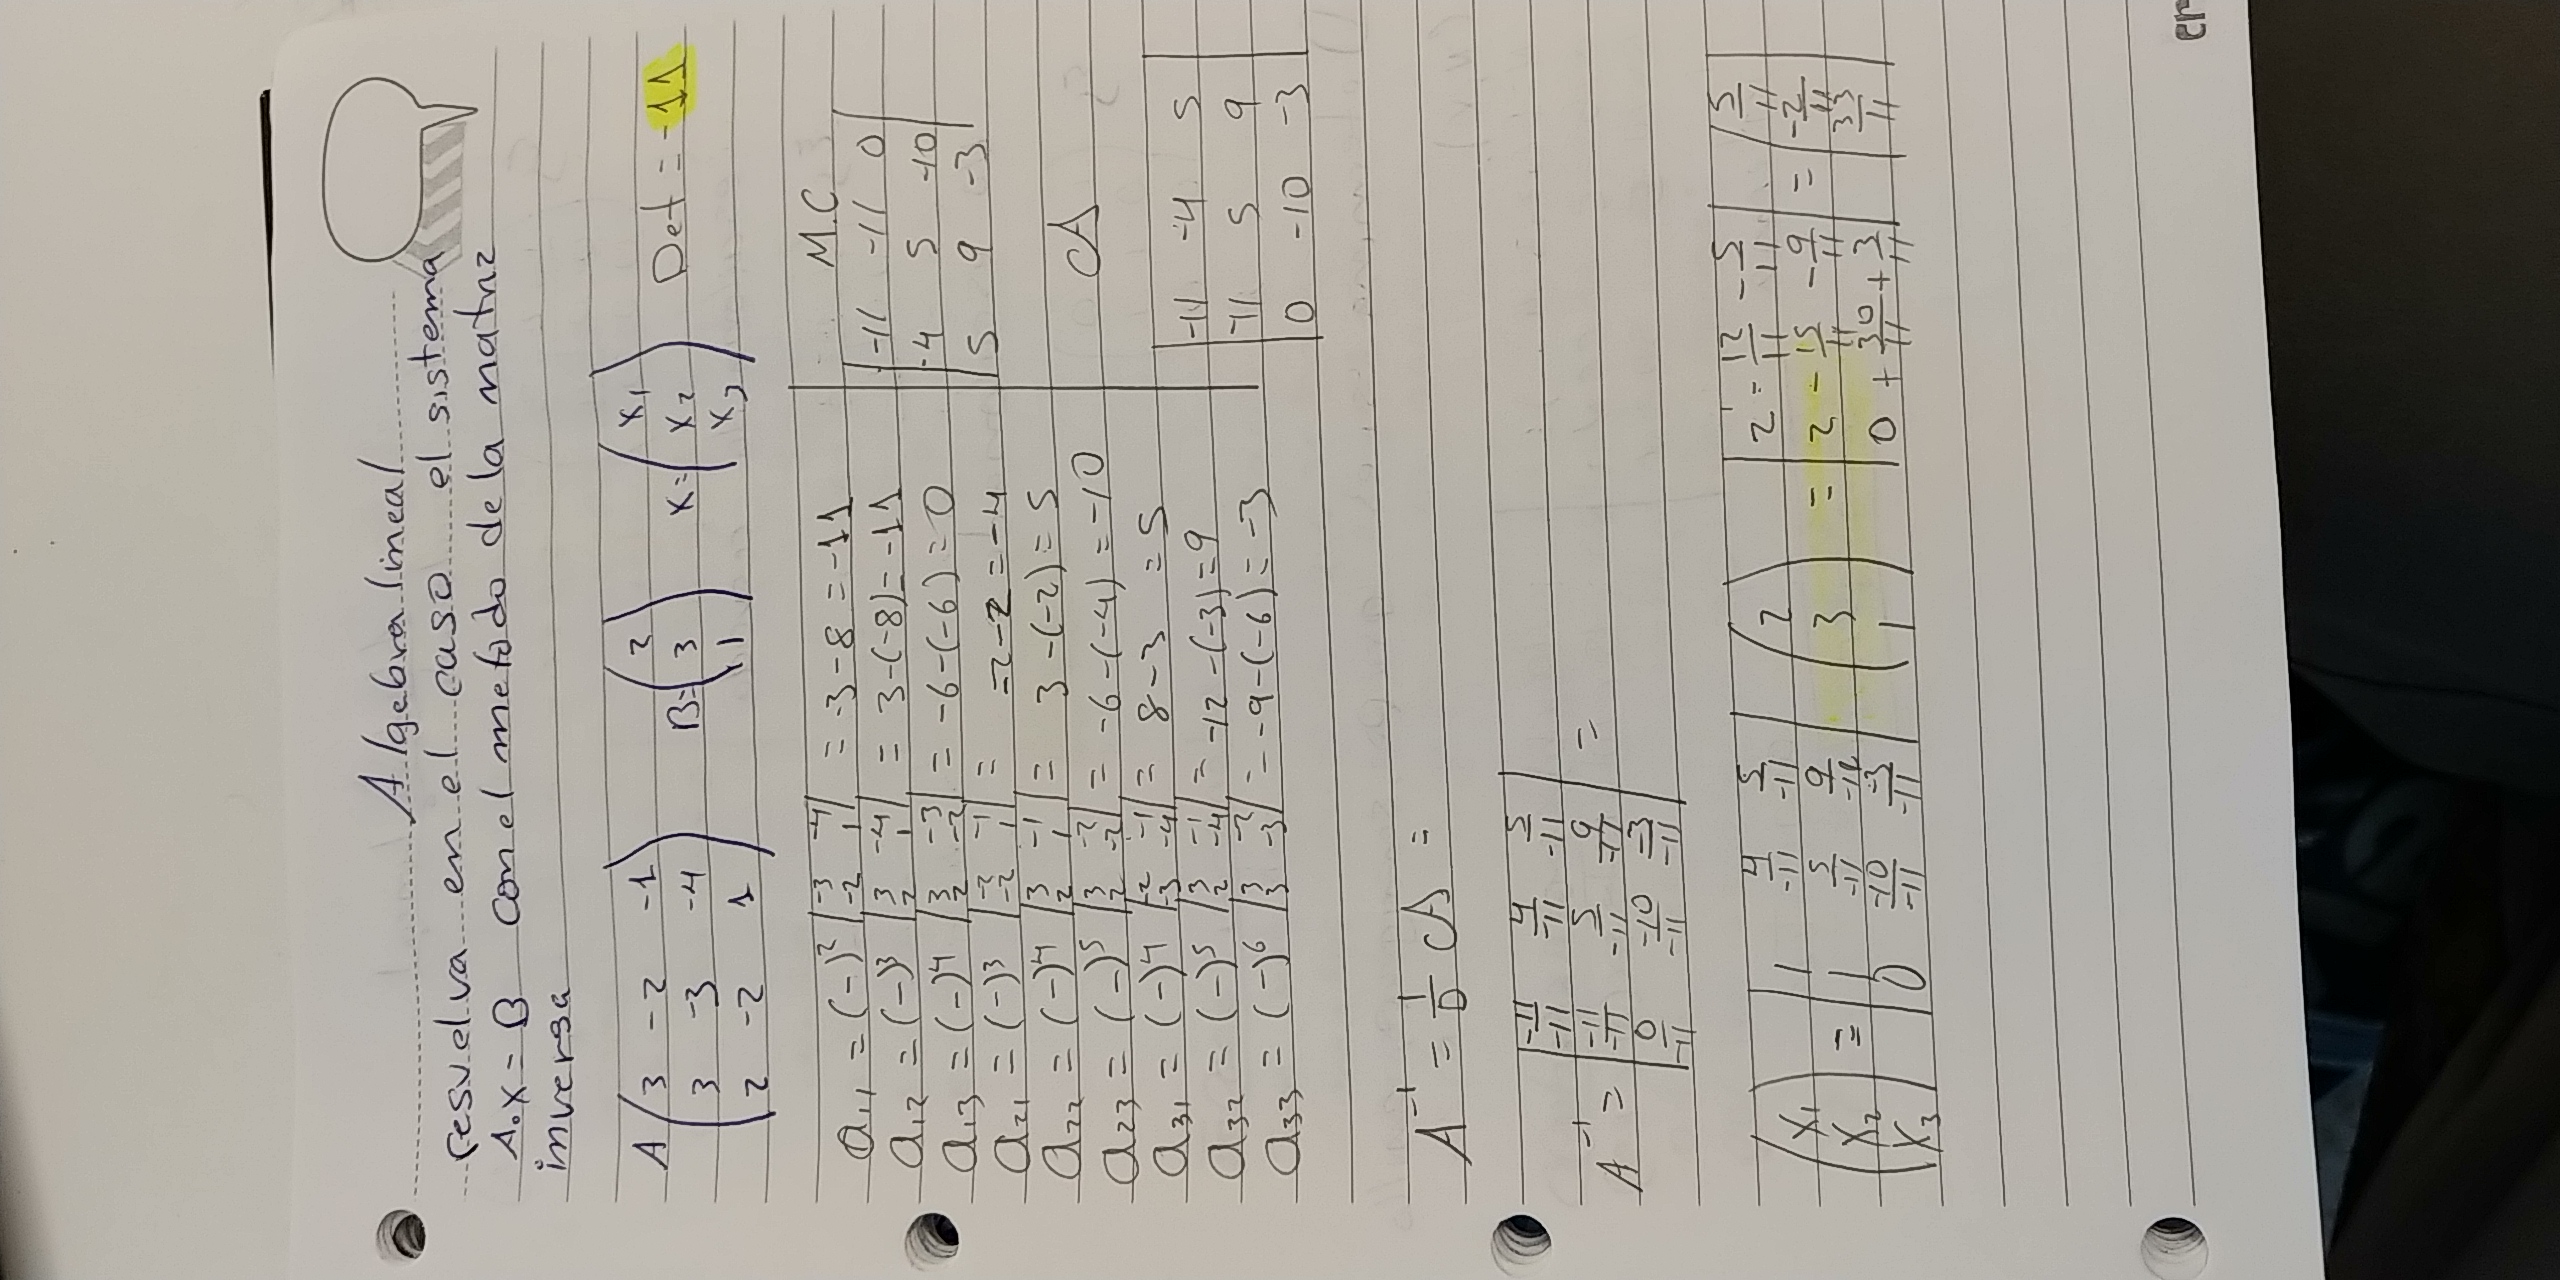 Algebra lineal
resuelva en el caso el sistema
A.X = B con el metodo de la matriz
inversa
A (3 -2 -1
3 -3 -4
2 -2 1)
B= (2
3
1)
X= (x1
x2
x3)
Det = -11
a11 = (-)² |-3 -4
-2 1| = -3-8 = -11
a12 = (-)³ |3 -4
2 1| = 3-(-8)= -11
a13 = (-)⁴ |3 -3
2 -2| = -6-(-6) = 0
a21 = (-)³ |-2 -1
-2 1| = -2-2 = -4
a22 = (-)⁴ |3 -1
2 1| = 3-(-2) = 5
a23 = (-)⁵ |3 -2
2 -2| = -6-(-4) = -10
a31 = (-)⁴ |-2 -1
-3 -4| = 8-3 = 5
a32 = (-)⁵ |3 -1
2 -4| = -12-(-3) = 9
a33 = (-)⁶ |3 -2
3 -3| = -9-(-6) = -3
M.C
|-11 -11 0
-4 5 -10
5 9 -3|
cA
|-11 -4 5
-11 5 9
0 -10 -3|
A⁻¹ = 1/D cA =
A⁻¹ = |-11/-11 4/-11 5/-11
-11/-11 5/-11 9/-11
0/-11 -10/-11 -3/-11| =
(x1
x2
x3) = |1 4/-11 5/-11
1 5/-11 9/-11
0 -10/-11 -3/-11| (2
3
1) = |2 - 12/11 - 5/11
2 - 15/11 - 9/11
0 + 30/11 + 3/11| = |5/11
-2/11
33/11|
er